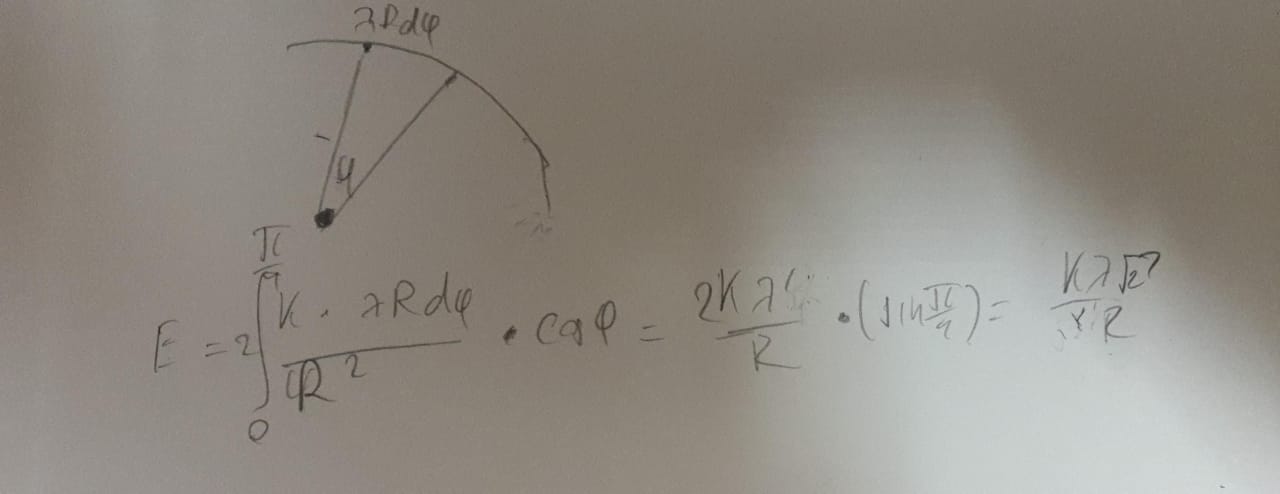 λRdφ
φ
E = 2∫₀^(π/4) K · λRdφ / R² · cosφ = 2Kλ / R · (sin π/4) = Kλ√2 / R